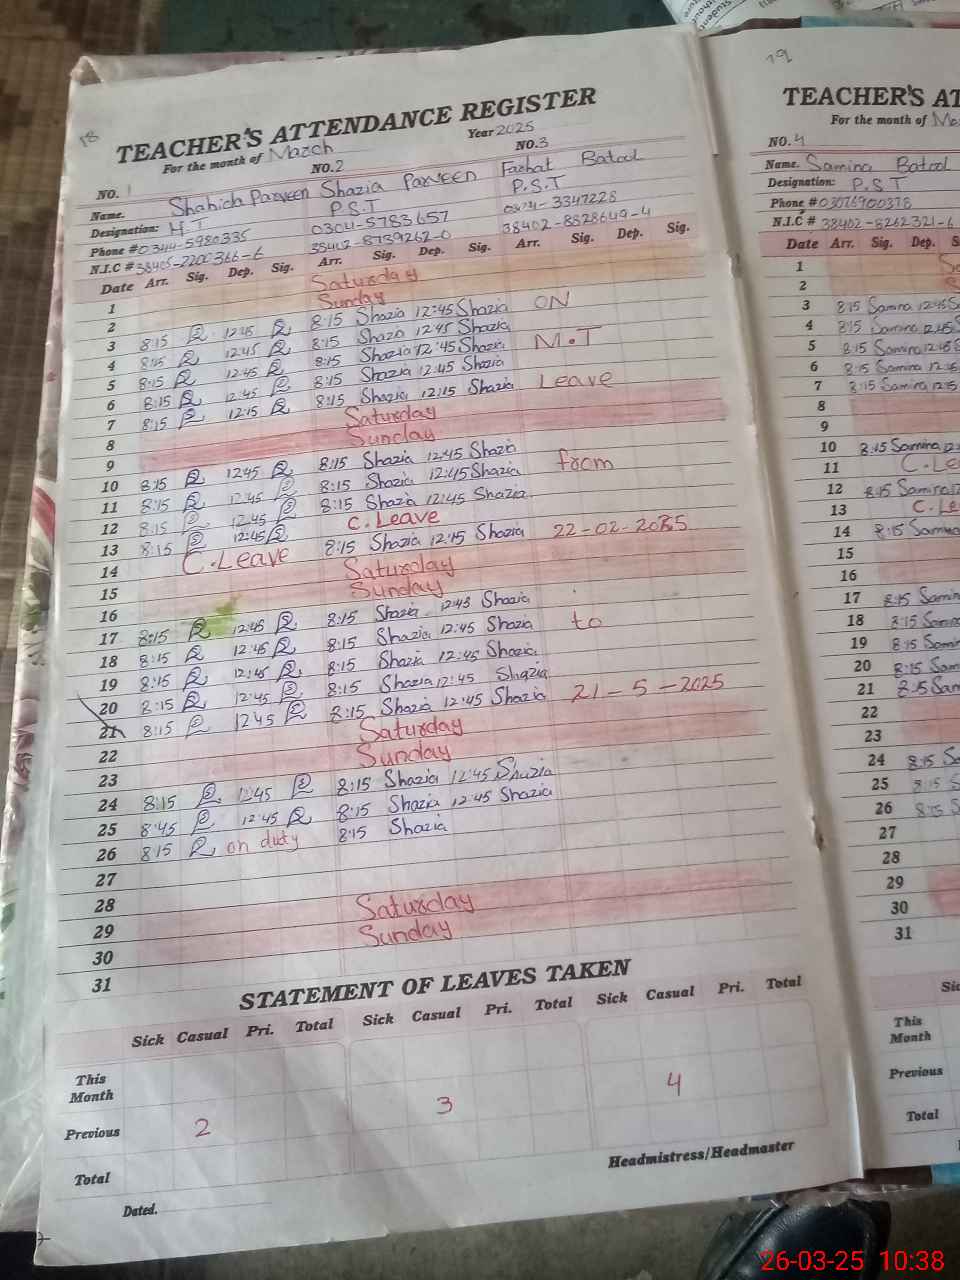 18
TEACHER'S ATTENDANCE REGISTER
For the month of March Year 2025
NO. 1 NO.2 NO.3
Name. Shahida Parveen Shazia Parveen Farhat Batool
Designation: H T P.S.T P.S.T
Phone # 0344-5980335 0304-5783657 3347228
N.I.C # 38405-2200366-6 38402-8739262-0 38402-8828649-4
Date Arr. Sig. Dep. Sig. Arr. Sig. Dep. Sig. Arr. Sig. Dep. Sig.
1 Saturday
2 Sunday
3 8:15 12:45 8:15 Shazia 12:45 Shazia ON
4 8:15 12:45 8:15 Shazia 12:45 Shazia
5 8:15 12:45 8:15 Shazia 12:45 Shazia M.T
6 8:15 12:45 8:15 Shazia 12:45 Shazia
7 8:15 12:15 8:15 Shazia 12:15 Shazia Leave
8 Saturday
9 Sunday
10 8:15 12:45 8:15 Shazia 12:45 Shazia
11 8:15 12:45 8:15 Shazia 12:45 Shazia from
12 8:15 12:45 8:15 Shazia 12:45 Shazia
13 8:15 12:45 C.Leave
14 C.Leave 8:15 Shazia 12:15 Shazia 22-02-2025
15 Saturday
16 Sunday
17 8:15 12:45 8:15 Shazia 12:45 Shazia
18 8:15 12:45 8:15 Shazia 12:45 Shazia to
19 8:15 12:45 8:15 Shazia 12:45 Shazia
20 8:15 12:45 8:15 Shazia 12:45 Shazia
21 8:15 12 45 8:15 Shazia 12:45 Shazia 21-5-2025
22 Saturday
23 Sunday
24 8:15 12:45 8:15 Shazia 12:45 Shazia
25 8:45 12:45 8:15 Shazia 12:45 Shazia
26 8:15 on duty 8:15 Shazia
27
28
29 Saturday
30 Sunday
31
STATEMENT OF LEAVES TAKEN
Sick Casual Pri. Total Sick Casual Pri. Total Sick Casual Pri. Total
This Month
Previous 2 3 4
Total
Headmistress/Headmaster
Dated.
19
TEACHER'S AT
For the month of
NO. 4
Name. Samina Batool
Designation: P.S.T
Phone # 03076900378
N.I.C # 38402-8262321-6
Date Arr. Sig. Dep. S
1
2
3 8:15 Samina 12:45
4 8:15 Samina 12:45
5 8:15 Samina 12:45
6 8:15 Samina 12:45
7 8:15 Samina 12:15
8
9
10 8:15 Samina
11 C.Le
12 8:15 Samina
13 C.Le
14 8:15 Samina
15
16
17 8:15 Samin
18 8:15 Sam
19 8:15 Sam
20 8:15 Sam
21 8:15 Sam
22
23
24 8:15
25 8:15
26 8:15
27
28
29
30
31
This Month
Previous
Total
26-03-25 10:38